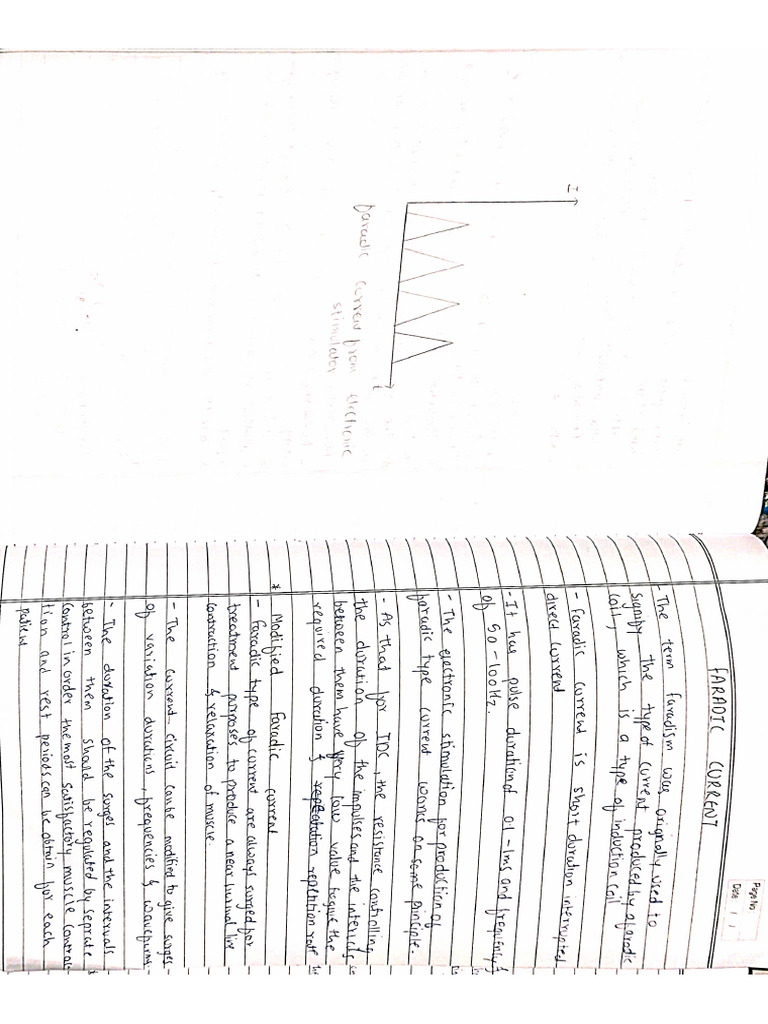 I
t
Daradic current from electronic
stimulator
Page No
Date / /
FARADIC CURRENT
- The term faradism was originally used to
signify the type of current produced by a faradic
coil, which is a type of induction coil
- Faradic current is short duration interrupted
direct current
- It has pulse duration of 0.1 - 1ms and frequency
of 50 - 100Hz.
- The electronic stimulation for production of
faradic type current works on same principle.
- As that for IDC, the resistance controlling
the duration of the impulses and the intervals
between them have very low value to give the
required duration & repetition rate
* Modified Faradic current
- Faradic type of current are always surged for
treatment purposes to produce a near normal like
contraction & relaxation of muscle.
- The current circuit can be modified to give surges
of variation durations, frequencies & waveforms
- The duration of the surges and the intervals
between them should be regulated by seprate
control in order the most satisfactory muscle contrac
tion and rest periods can be obtain for each
patient